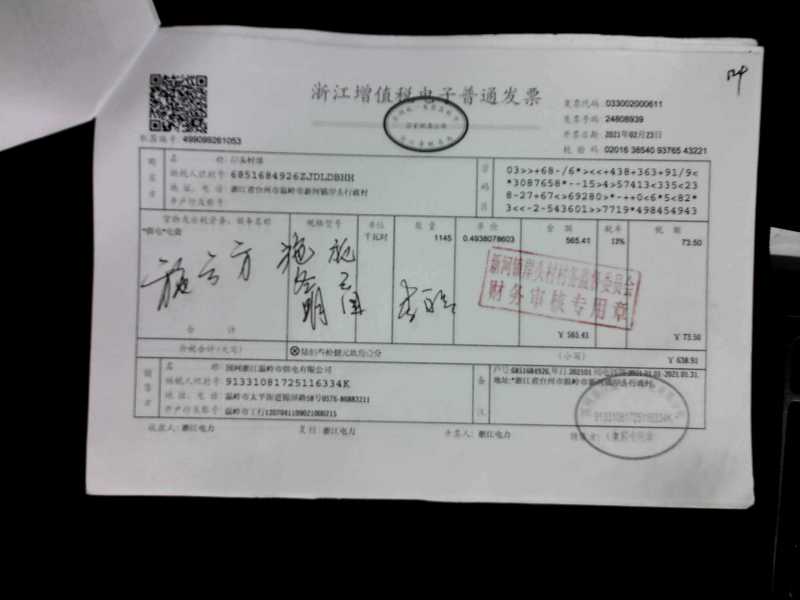 浙江增值税电子普通发票
发票代码: 033002000611
发票号码: 24808939
开票日期: 2021年02月23日
校验码: 02016 38540 93765 43221
机器编号: 499099261053
购买方
名称:
纳税人识别号: 6851684926ZJDLDBHH
地址、电话: 浙江省台州市温岭市新河镇岸头行政村
开户行及账号:
密码区
03>>+68-/6*><<+438+363+91/9<
*3087658*--15>4>57413<335<23
8-27+67<>69280>*-++0<6*5<82*
3<<-2-543601>>7719*498454943
货物或应税劳务、服务名称 规格型号 单位 数量 单价 金额 税率 税额
*供电*电费 千瓦时 1145 0.4938078603 565.41 13% 73.50
新河镇岸头村村务监督委员会
财务审核专用章
合计 ¥ 565.41 ¥ 73.50
价税合计(大写) ⊗陆佰叁拾捌元玖角壹分 (小写) ¥ 638.91
销售方
名称: 国网浙江温岭市供电有限公司
纳税人识别号: 91331081725116334K
地址、电话: 温岭市太平街道锦屏路58号0576-86883211
开户行及账号: 温岭市工行1207041109021000215
备注
户号:6851684926,年月:202101
地址:*浙江省台州市温岭市新河镇岸头行政村
91331081725116334K
收款人: 浙江电力 复核: 浙江电力 开票人: 浙江电力 销售方: